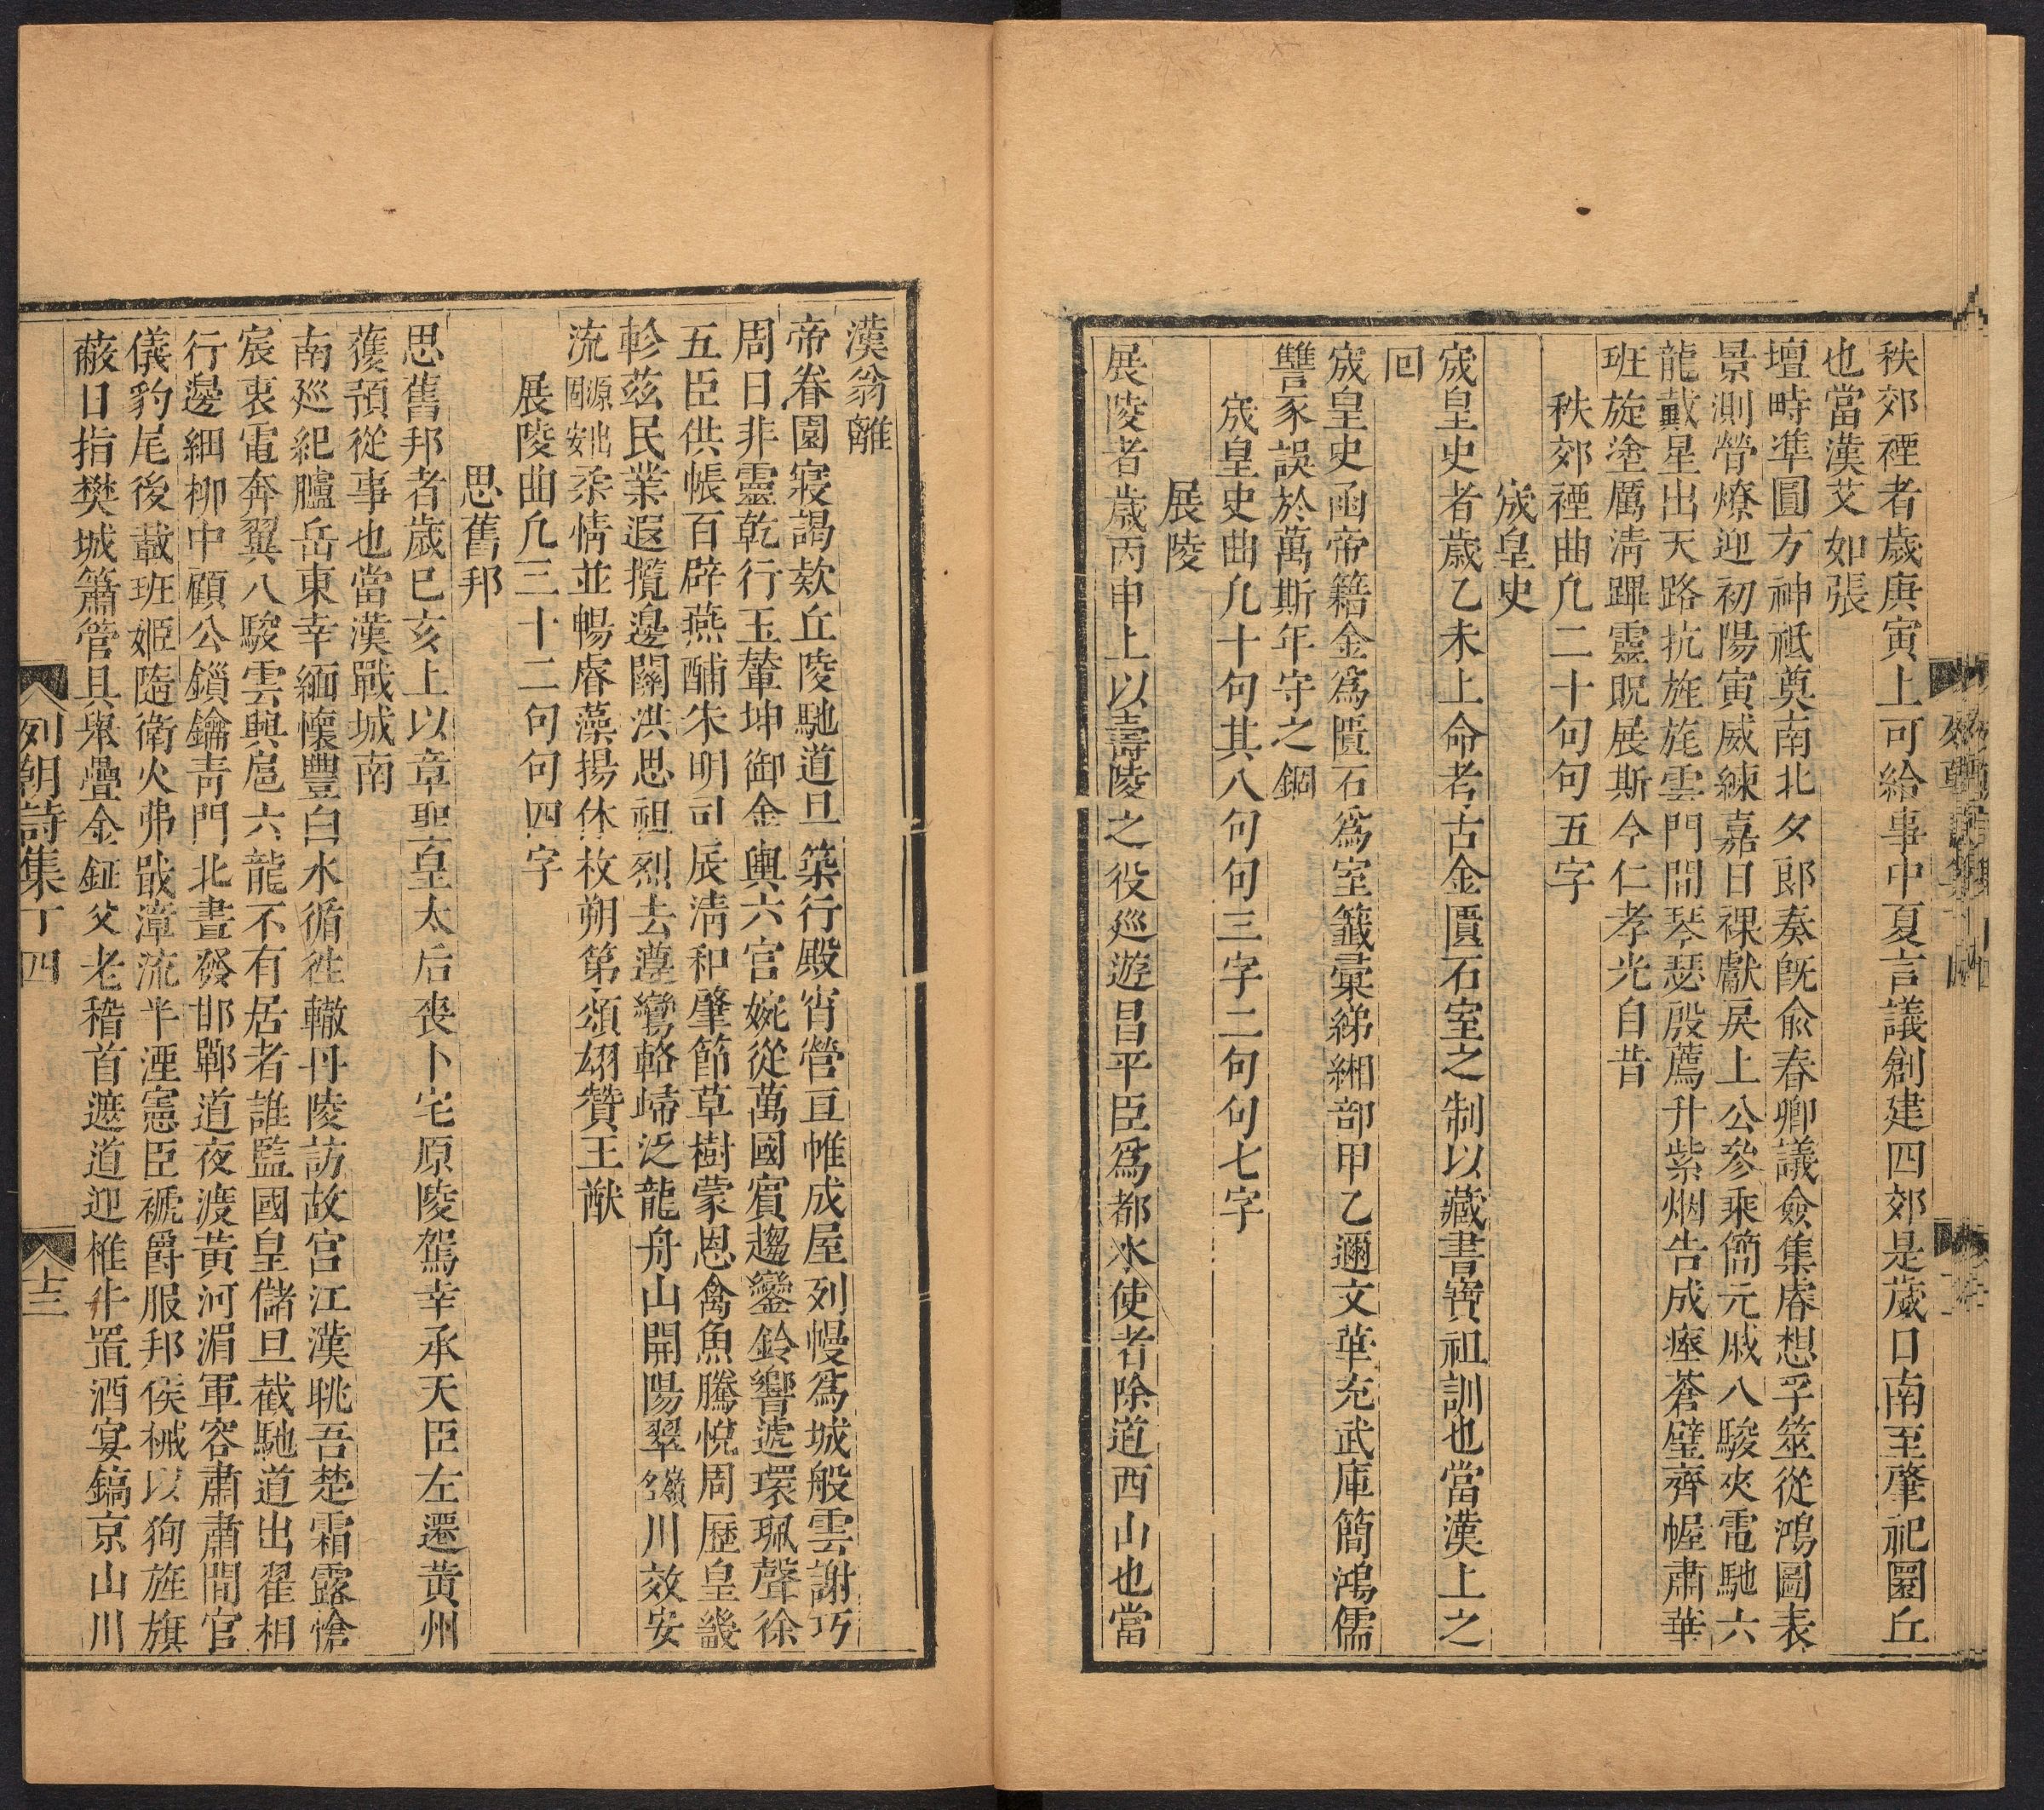 秩郊禋者歲庚寅上可給事中夏言議創建四郊是歲日南至肇祀圜丘
也當漢艾如張
壇畤準圓方神祇奠南北夕郎奏既俞春卿議僉集睿想孚筮從鴻圖表
景測營燎迎初陽寅威練嘉日祼獻戾上公參乘簡元戚八駿夾電馳六
龍戴星出天路抗旌旄雲門間琴瑟殷薦升紫烟告成瘞蒼璧齊幄肅華
班旋塗厲清蹕靈貺展斯今仁孝光自昔
秩郊禋曲凢二十句句五字
宬皇史
宬皇史者歲乙未上命考古金匱石室之制以藏書寶祖訓也當漢上之
回
宬皇史函帝籍金爲匱石爲室籤彙綈緗部甲乙邇文華充武庫簡鴻儒
讐豕誤於萬斯年守之錮
宬皇史曲凢十句其八句句三字二句句七字
展陵
展陵者歲丙申上以壽陵之役廵遊昌平臣爲都水使者除道西山也當
漢翁離
帝眷園寢謁欵丘陵馳道旦築行殿宵營亘帷成屋列幔爲城般雲謝巧
周日非靈乾行玉輦坤御金輿六宮婉從萬國賓趨鑾鈴響遞環珮聲徐
五臣供帳百辟燕酺朱明司辰清和肇節草樹蒙恩禽魚騰悅周歷皇畿
軫茲民業遐攬邊關洪思祖烈去遵鸞輅歸泛龍舟山開陽翠嶺名川效安
流源出固安柔情並暢睿藻揚休枚朔第頌翊贊王猷
展陵曲凢三十二句句四字
思舊邦
思舊邦者歲巳亥上以章聖皇太后喪卜宅原陵駕幸承天臣左遷黃州
蒦預從事也當漢戰城南
南廵紀臚岳東幸緬懷豐白水循徃轍丹陵訪故宮江漢眺吾楚霜露愴
宸衷電奔翼八駿雲興扈六龍不有居者誰監國皇儲旦截馳道出翟相
行邊細柳中顧公鎖鑰青門北晝發邯鄲道夜渡黃河湄軍容肅肅間官
儀豹尾後載班姬隨衛火弗戢漳流半湮憲臣褫爵服邦侯械以狥旌旗
蔽日指樊城簫管具舉疊金鉦父老稽首遮道迎椎牛置酒宴鎬京山川
列朝詩集丁四
十三